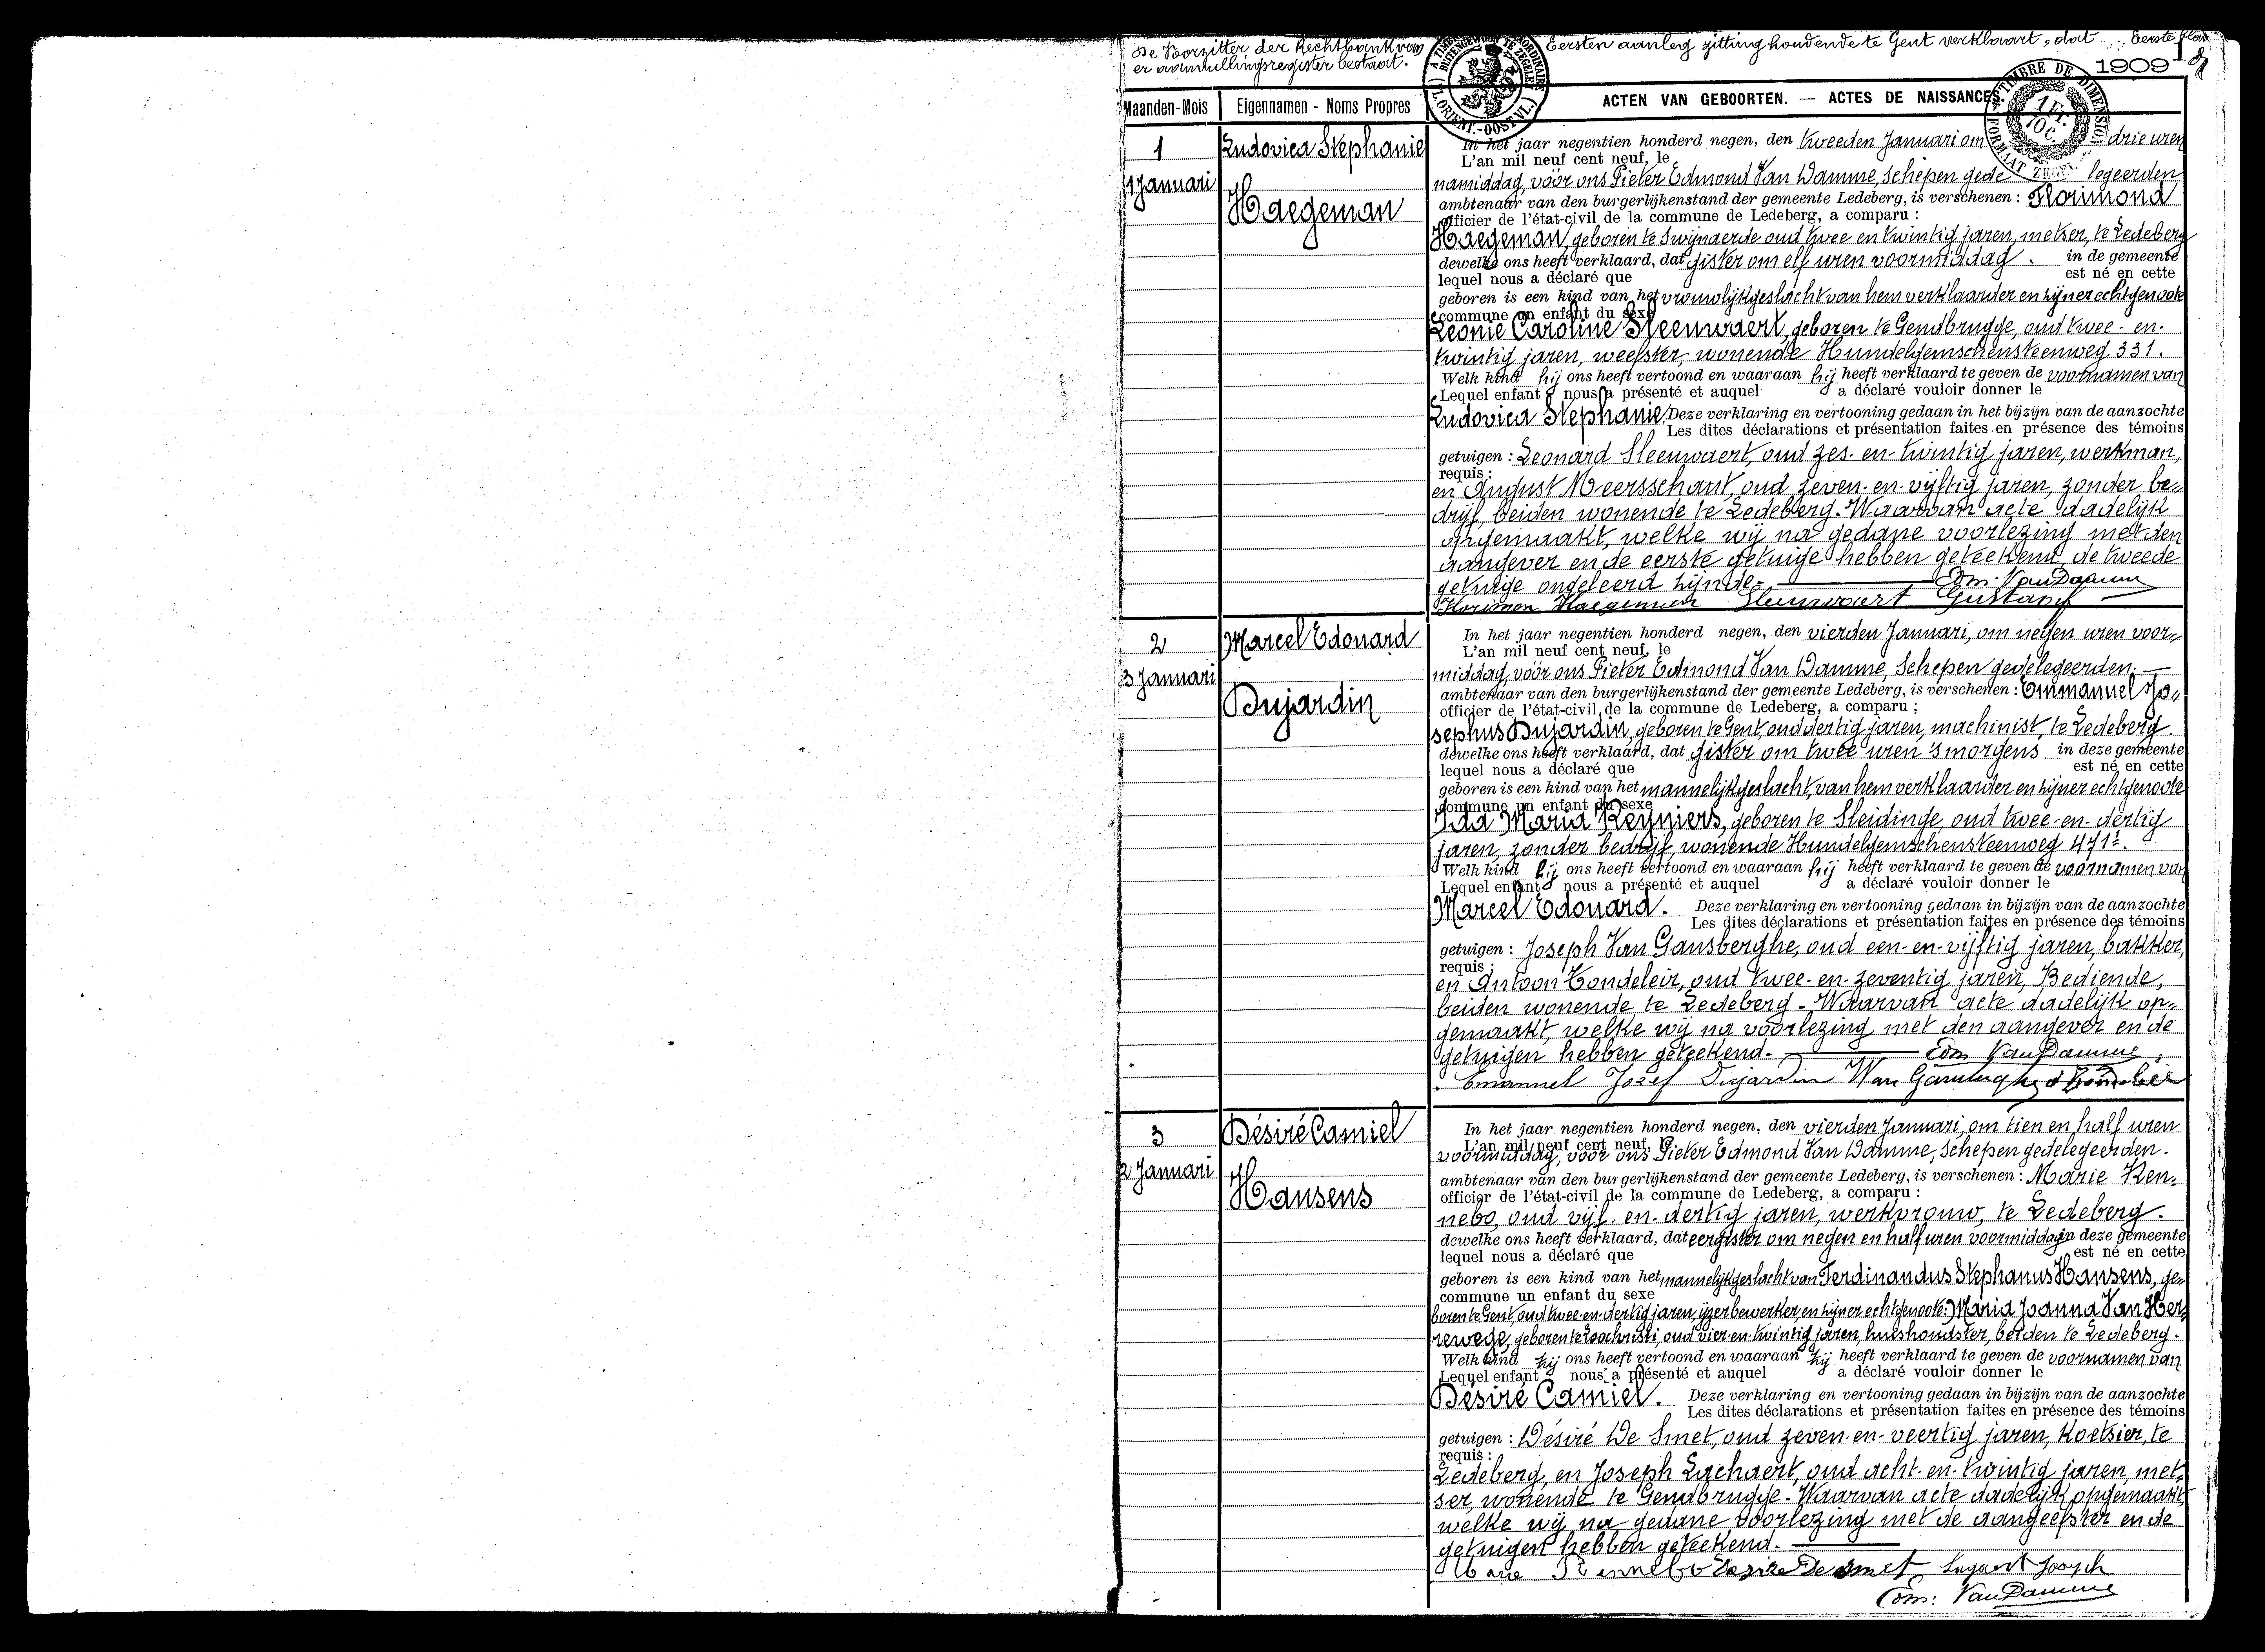 De Voorzitter der Rechtbank van Eersten aanleg zitting houdende te Gent verklaart, dat Eerste blad
er aanvullingsregister bestaat.
1909
Maanden-Mois Eigennamen - Noms Propres ACTEN VAN GEBOORTEN. — ACTES DE NAISSANCES.
TIMBRE DE DIMENSION
1 FR. 10 C.
FORMAAT ZEGEL
1
1 Januari
Ludovica Stephanie
Haegeman
In het jaar negentien honderd negen, den tweeden Januari om drie uren
L'an mil neuf cent neuf, le
namiddag, vóór ons Pieter Edmond Van Damme, Schepen gedelegeerden
ambtenaar van den burgerlijkenstand der gemeente Ledeberg, is verschenen : Florimond
officier de l'état-civil de la commune de Ledeberg, a comparu :
Haegeman, geboren te Swijnaerde oud twee en twintig jaren, metser, te Ledeberg
dewelke ons heeft verklaard, dat gister om elf uren voormiddag. in de gemeente
lequel nous a déclaré que est né en cette
geboren is een kind van het vrouwlijkgeslacht van hem verklaarder en zijner echtgenoote
commune un enfant du sexe
Leonie Caroline Sleeuwaert, geboren te Gendbrugge, oud twee-en-
twintig jaren, weefster, wonende Hundelgemschensteenweg 331.
Welk kind hij ons heeft vertoond en waaraan hij heeft verklaard te geven de voornamen van
Lequel enfant nous a présenté et auquel a déclaré vouloir donner le
Ludovica Stephanie. Deze verklaring en vertooning gedaan in het bijzijn van de aanzochte
Les dites déclarations et présentation faites en présence des témoins
getuigen : Leonard Sleeuwaert, oud zes-en-twintig jaren, werkman,
requis :
en August Meersschaut, oud zeven-en-vijftig jaren, zonder be„
drijf, beiden wonende te Ledeberg. Waarvan acte dadelijk
opgemaakt, welke wij na gedane voorlezing met den
aangever en de eerste getuige hebben geteekend, de tweede
getuige ongeleerd zijnde. Edm. Van Damme
Florimon Haegeman Sleeuwaert Gustaaf
2
3 Januari
Marcel Edouard
Dujardin
In het jaar negentien honderd negen, den vierden Januari, om negen uren voor„
L'an mil neuf cent neuf, le
middag, vóór ons Pieter Edmond Van Damme, Schepen gedelegeerden.
ambtenaar van den burgerlijkenstand der gemeente Ledeberg, is verschenen : Emmanuel Jo„
officier de l'état-civil de la commune de Ledeberg, a comparu ;
sephus Dujardin, geboren te Gent, oud dertig jaren, machinist, te Ledeberg.
dewelke ons heeft verklaard, dat gister om twee uren 's morgens in deze gemeente
lequel nous a déclaré que est né en cette
geboren is een kind van het mannelijkgeslacht, van hem verklaarder en zijner echtgenoote
commune un enfant du sexe
Ida Maria Reyniers, geboren te Sleidinge, oud twee-en-dertig
jaren, zonder bedrijf, wonende Hundelgemschensteenweg 471
Welk kind hij ons heeft vertoond en waaraan hij heeft verklaard te geven de voornamen van
Lequel enfant nous a présenté et auquel a déclaré vouloir donner le
Marcel Edouard. Deze verklaring en vertooning gedaan in bijzijn van de aanzochte
Les dites déclarations et présentation faites en présence des témoins
getuigen : Joseph Van Gansberghe, oud een-en-vijftig jaren, bakker,
requis :
en Antoon Hondeleir, oud twee-en-zeventig jaren, Bediende,
beiden wonende te Ledeberg. Waarvan acte dadelijk op„
gemaakt, welke wij na voorlezing met den aangever en de
getuigen hebben geteekend. Edm Van Damme
Emannuel Jozef Dujardin
3
2 Januari
Désiré Camiel
Hansens
In het jaar negentien honderd negen, den vierden Januari, om tien en half uren
L'an mil neuf cent neuf, le
voormiddag, vóór ons Pieter Edmond Van Damme, Schepen gedelegeerden.
ambtenaar van den burgerlijkenstand der gemeente Ledeberg, is verschenen : Marie Ren„
officier de l'état-civil de la commune de Ledeberg, a comparu :
nebo, oud vijf-en-dertig jaren, werkvrouw, te Ledeberg.
dewelke ons heeft verklaard, dat eergister om negen en half uren voormiddag in deze gemeente
lequel nous a déclaré que est né en cette
geboren is een kind van het mannelijkgeslacht van Ferdinandus Stephanus Hansens, ge„
commune un enfant du sexe
boren te Gent, oud twee-en-dertig jaren, ijzerbewerker, en zijner echtgenoote: Maria Joanna Van Her„
rewege, geboren te Loochristi, oud vier-en-twintig jaren, huishoudster, beiden te Ledeberg.
Welk kind zij ons heeft vertoond en waaraan zij heeft verklaard te geven de voornamen van
Lequel enfant nous a présenté et auquel a déclaré vouloir donner le
Désiré Camiel. Deze verklaring en vertooning gedaan in bijzijn van de aanzochte
Les dites déclarations et présentation faites en présence des témoins
getuigen : Désiré De Smet, oud zeven-en-veertig jaren, koetsier, te
requis :
Ledeberg, en Joseph Lachaert, oud acht-en-twintig jaren, met„
ser, wonende te Gendbrugge. Waarvan acte dadelijk opgemaakt,
welke wij na gedane voorlezing met de aangeefster en de
getuigen hebben geteekend.
Marie Rennebo Desire De Smet Joseph
Edm. Van Damme